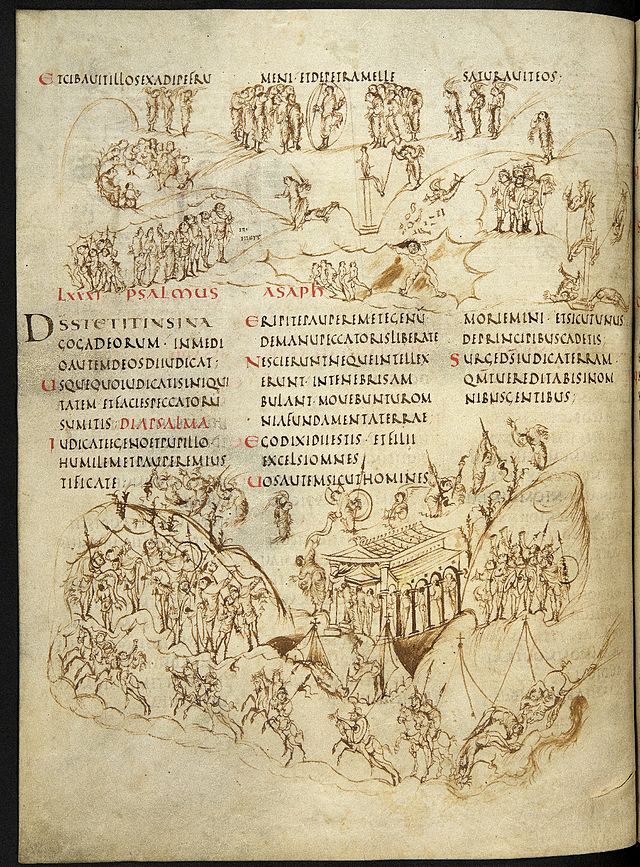 ETCIBAUITILLOSEXADIPEFRU MENI· ETDEPETRAMELLE SATURAUITEOS·
LXXXI PSALMUS ASAPH
DSSTETITINSINA
COGADEORUM· INMEDI
OAUTEMDEOSDIIUDICAT;
USQUEQUOIUDICATISINIQUI
TATEM· ETFACIESPECCATORU
SUMITIS· DIAPSALMA
IUDICATEEGENOETPUPILLO
HUMILEMETPAUPEREMIUS
TIFICATE·
ERIPITEPAUPEREMETEGENU
DEMANUPECCATORISLIBERATE
NESCIERUNTNEQUEINTELLEX
ERUNT· INTENEBRISAM
BULANT· MOUEBUNTUROM
NIAFUNDAMENTATERRAE·
EGODIXIDIIESTIS· ETFILII
EXCELSIOMNES·
UOSAUTEMSICUTHOMINES
MORIEMINI· ETSICUTUNUS
DEPRINCIPIBUSCADETIS;
SURGEDSIUDICATERRAM·
QMTUEREDITABISINOM
NIBUSGENTIBUS;